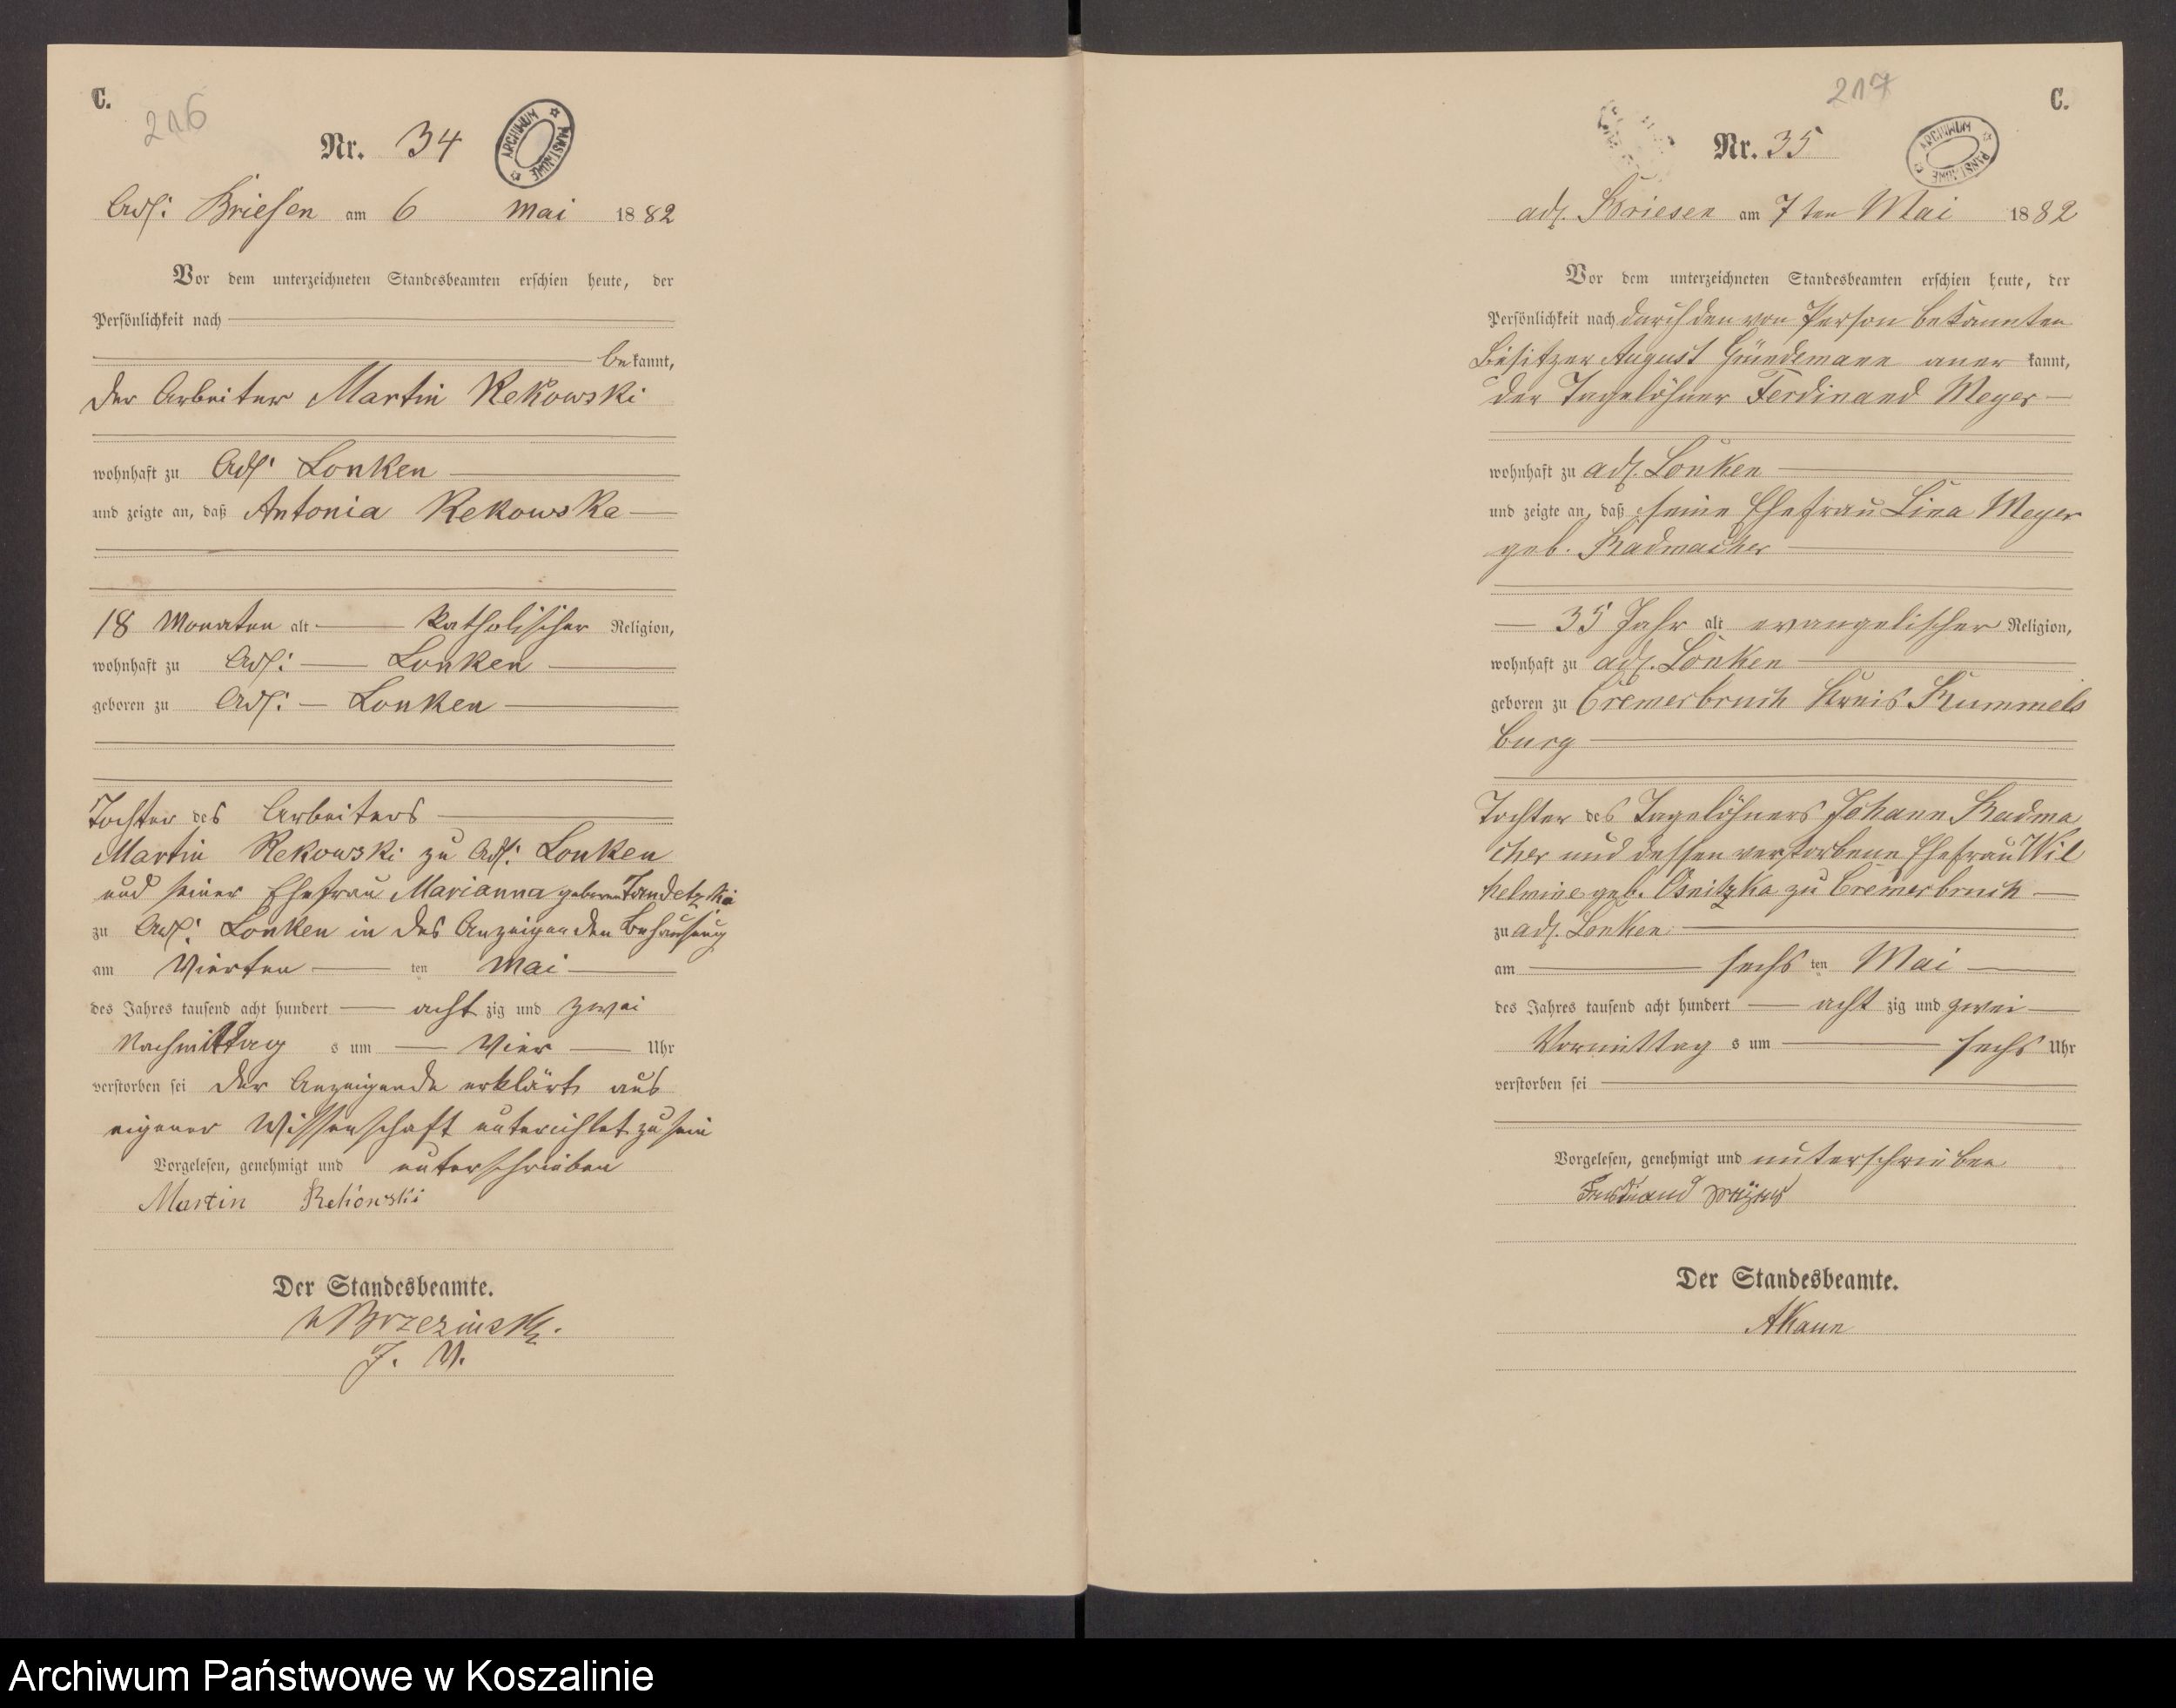 C.
216
Nr. 34
ARCHIWUM PAŃSTWOWE
Adl: Briesen am 6 Mai 1882
Vor dem unterzeichneten Standesbeamten erschien heute, der
Persönlichkeit nach
bekannt,
der Arbeiter Martin Rekowski
wohnhaft zu Adl: Lonken
und zeigte an, daß Antonia Rekowska
18 Monaten alt katholischer Religion,
wohnhaft zu Adl: Lonken
geboren zu Adl: Lonken
Tochter des Arbeiters
Martin Rekowski zu Adl: Lonken
und seiner Ehefrau Marianna geboren Tandetzki
zu Adl: Lonken in des Anzeigenden Behausung
am Vierten ten Mai
des Jahres tausend acht hundert acht zig und zwei
Nachmittag s um Vier Uhr
verstorben sei der Anzeigende erklärt aus
eigener Wissenschaft unterichtet zu sein
Vorgelesen, genehmigt und unterschrieben
Martin Rekowski
Der Standesbeamte.
v Brzezinski.
J. V.
217
C.
Nr. 35
ARCHIWUM PAŃSTWOWE
adl. Briesen am 7ten Mai 1882
Vor dem unterzeichneten Standesbeamten erschien heute, der
Persönlichkeit nach durch den von Person bekannten
Besitzer August Gründemann aner kannt,
der Tagelöhner Ferdinand Meyer
wohnhaft zu adl. Lonken
und zeigte an, daß seine Ehefrau Lina Meyer
geb. Radmacher
35 Jahr alt evangelischer Religion,
wohnhaft zu adl. Lonken
geboren zu Cremerbruch Kreis Rummels
burg
Tochter des Tagelöhners Johann Radma
cher und dessen verstorbene Ehefrau Wil
helmine geb. Osnitzka zu Cremerbruch
zu adl. Lonken
am sechs ten Mai
des Jahres tausend acht hundert acht zig und zwei
Vormittag s um sechs Uhr
verstorben sei
Vorgelesen, genehmigt und unterschrieben
Ferdinand Meyer
Der Standesbeamte.
AKaun
Archiwum Państwowe w Koszalinie